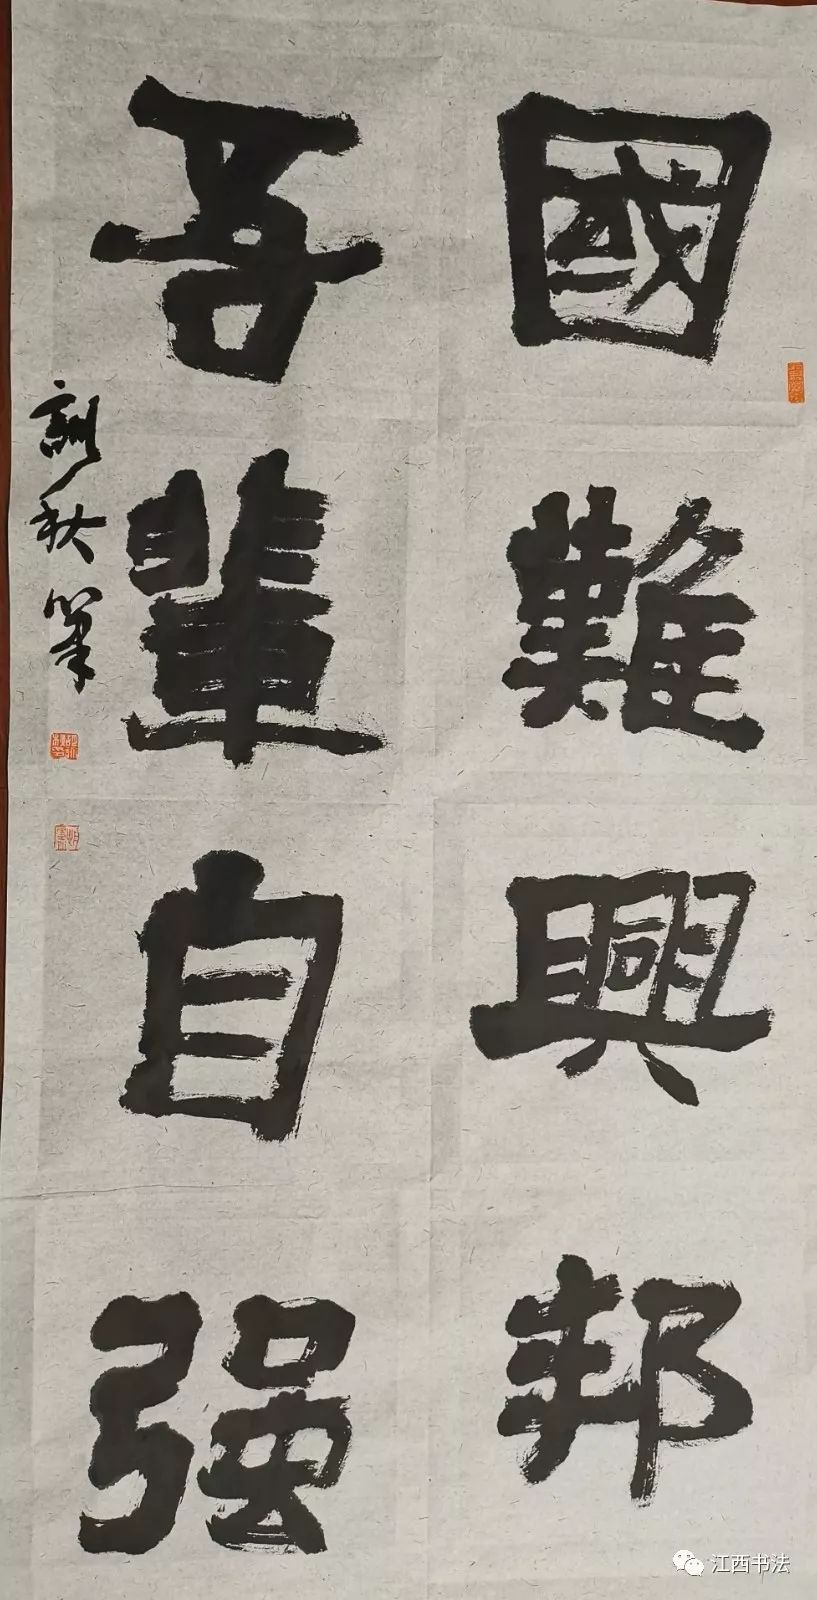 國難興邦
吾輩自强
訓秋筆
江西书法